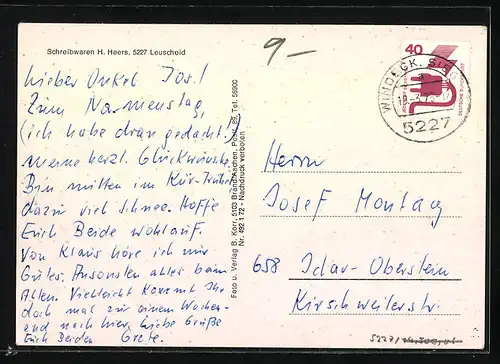 Schreibwaren H. Heers, 5227 Leuscheid
9,-
40
WINDECK, SIEG
5227
DEUTSCHE BUNDESPOST
Lieber Onkel Jos.!
Zum Namenstag,
(ich habe dran gedacht!)
meine herzl. Glückwünsche.
Bin mitten im Kür-Trubel
dazu viel Schnee. Hoffe
Euch Beide wohlauf.
Von Klaus höre ich nur
Gutes. Ansonsten alles beim
Alten. Vielleicht kommt Ihr
doch mal zu einem Wochen-
end nach hier. Liebe Grüße
Euch Beiden Grete.
Foto u. Verlag B. Korr, 5103 Brand/Aachen, Postf. 89, Tel. 56900
Nr. 492 1 72 - Nachdruck verboten
Herrn
Josef Montag
658 Idar-Oberstein
Kirschweilerstr.
5227/